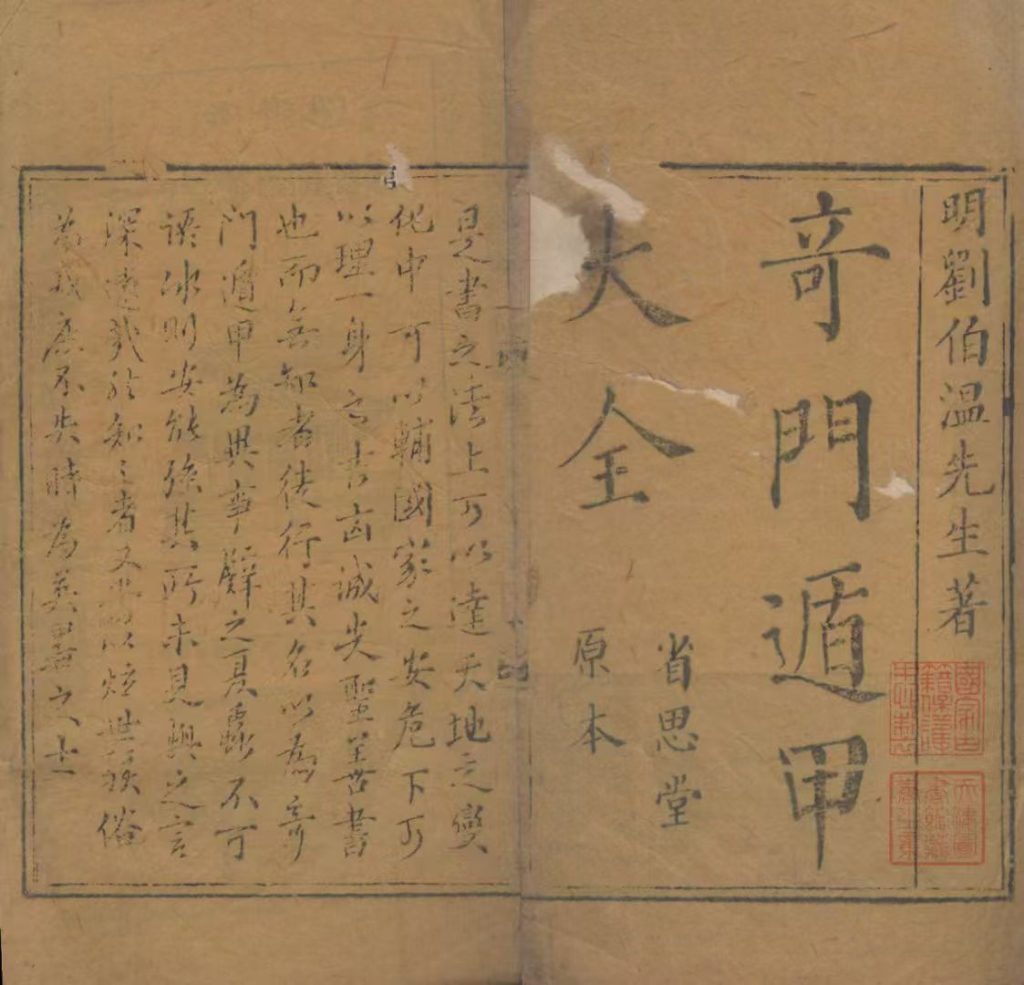 明劉伯溫先生著
奇門遁甲
大全
省思堂
原本
是書之法上可以達天地之變
化中可以輔國家之安危下可
以理一身之吉凶誠尖聖羊苦書
也而無知者徒行其名以為奇
門遁甲為異事譬之夏蟲不可
語冰則安能除其所未見與之言
深遠哉於知之者又以炫世俗
為我庶不失時為英之士
國家古籍保護